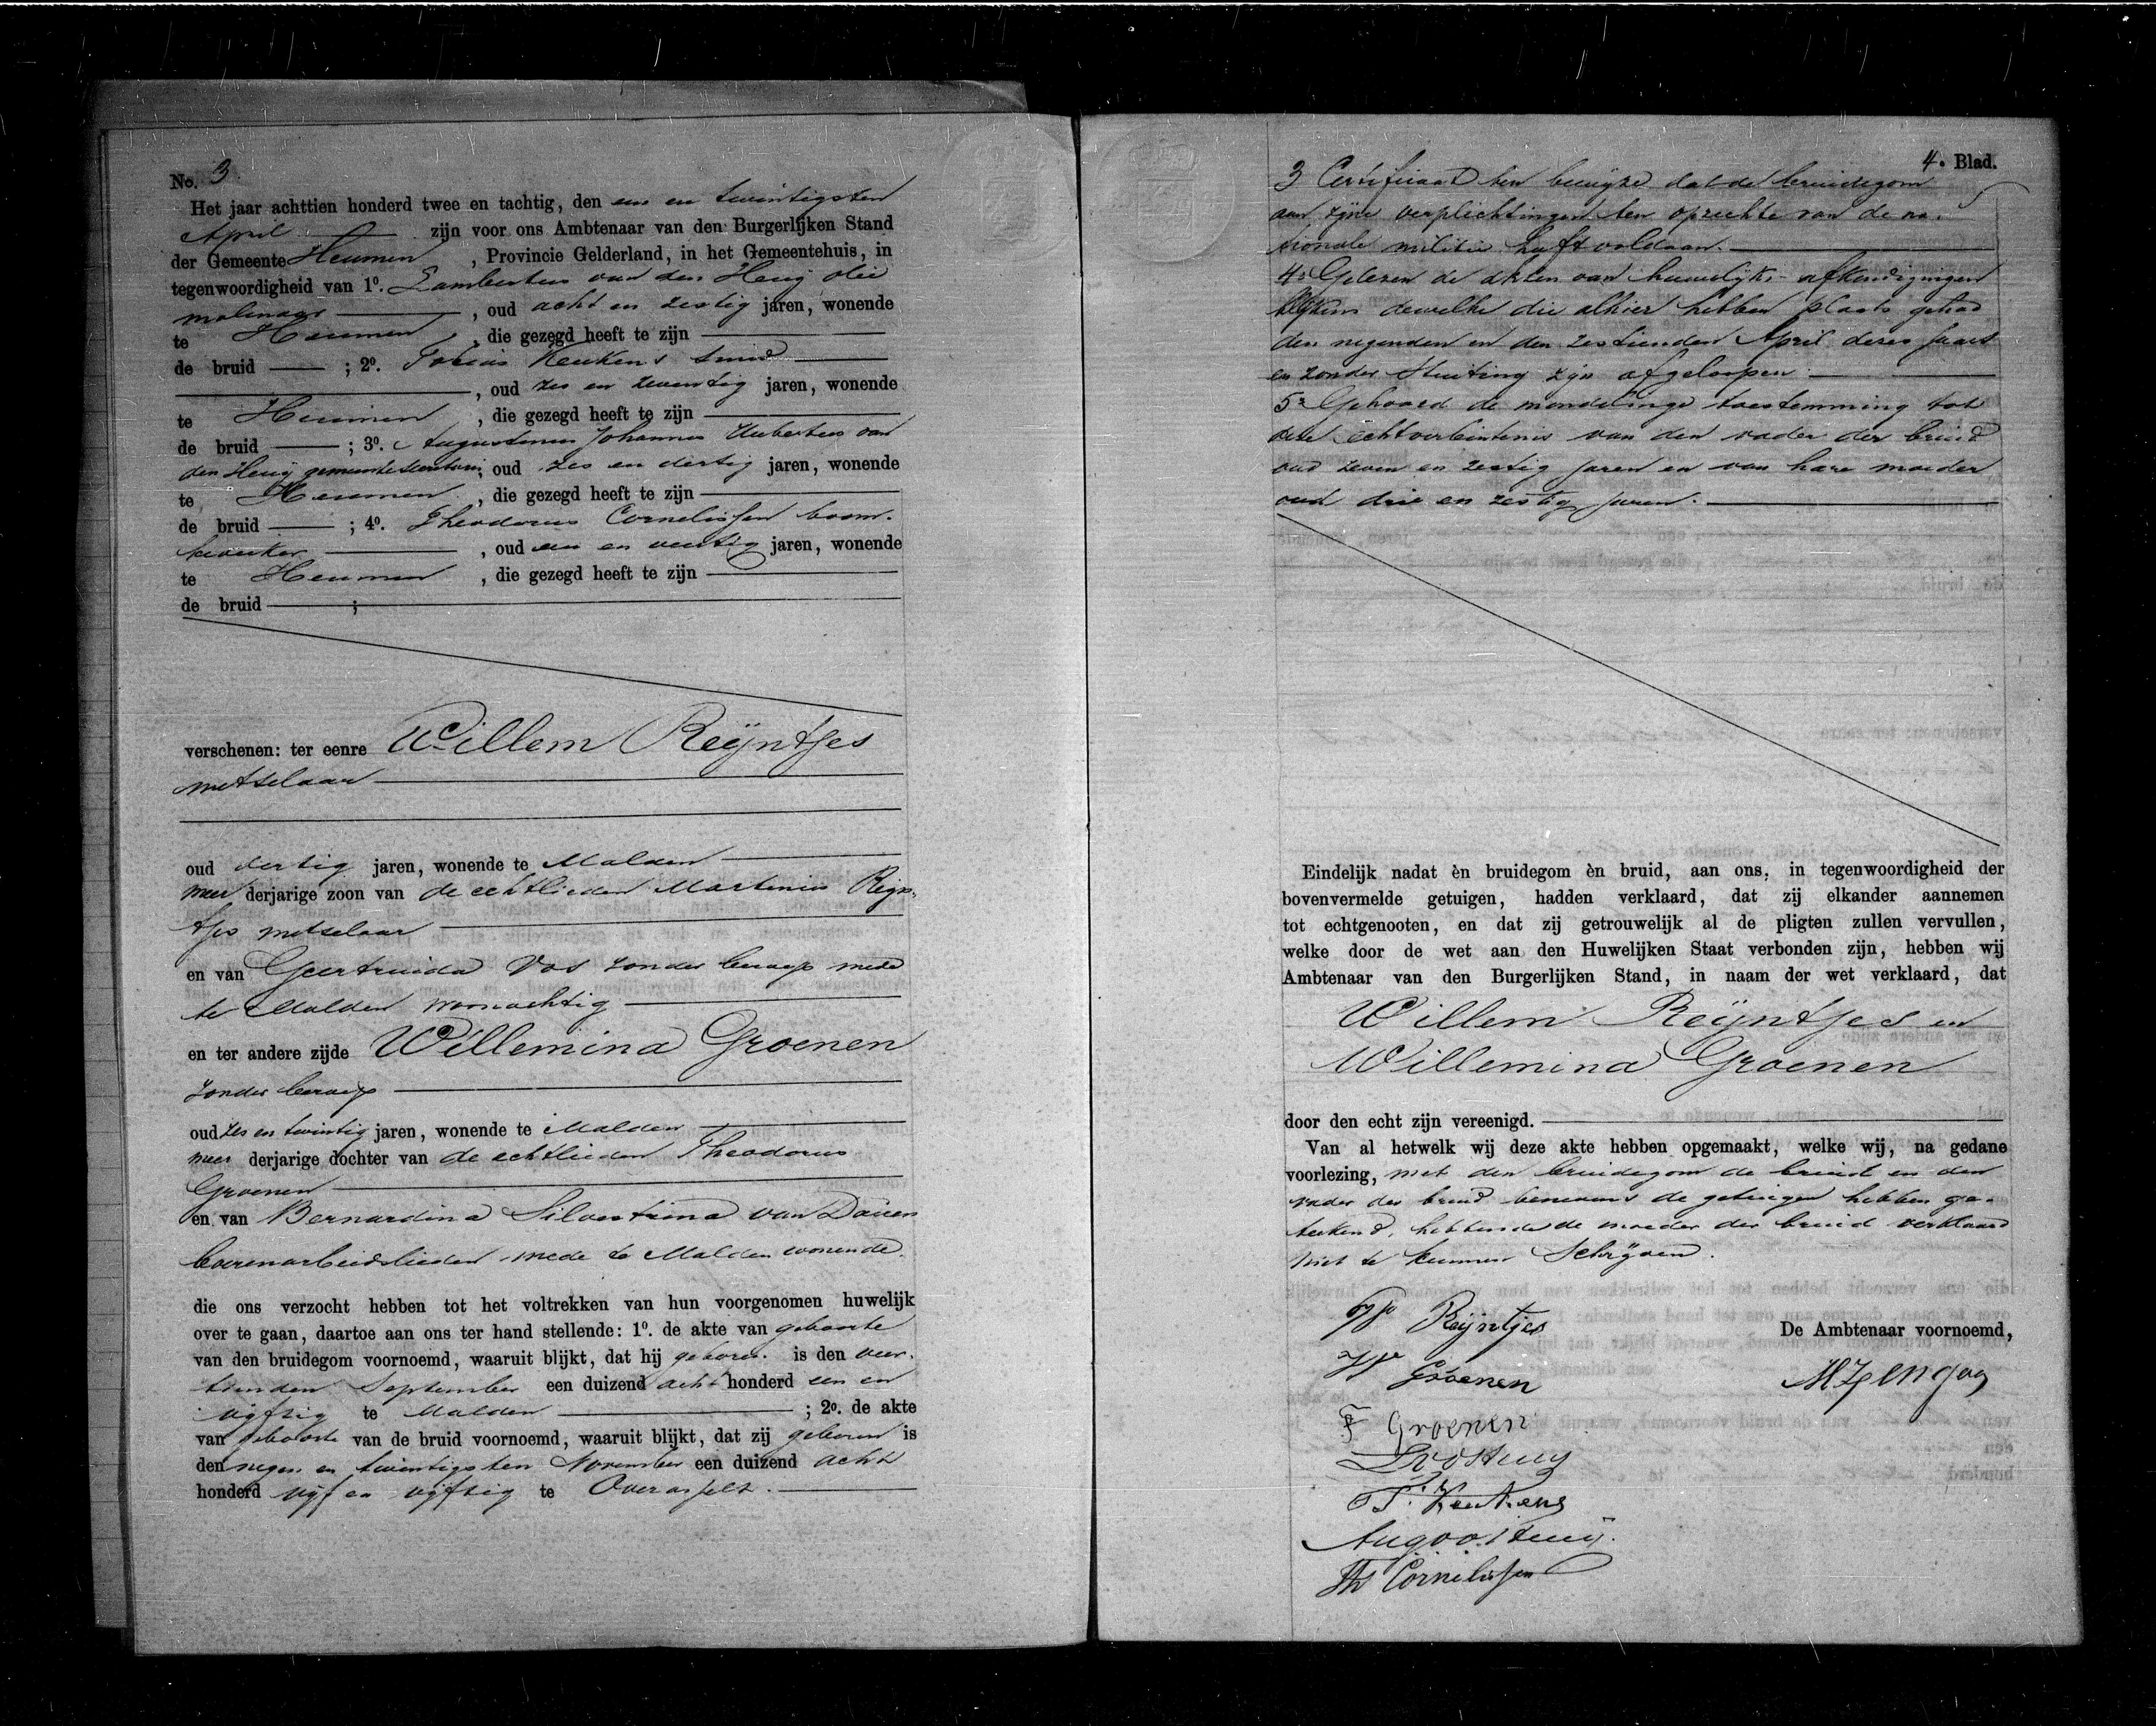 No. 3
Het jaar achttien honderd twee en tachtig, den een en twintigsten
April zijn voor ons Ambtenaar van den Burgerlijken Stand
der Gemeente Heumen, Provincie Gelderland, in het Gemeentehuis, in
tegenwoordigheid van 1º. Lambertus van den Heuij olie
molenaar, oud acht en zestig jaren, wonende
te Heumen, die gezegd heeft te zijn
de bruid ; 2º. Tobias Keukens smid
, oud zes en zeventig jaren, wonende
te Heumen, die gezegd heeft te zijn
de bruid ; 3º. Augustinus Johannes Hubertus van
den Heuij gemeentesecretaris, oud zes en dertig jaren, wonende
te Heumen, die gezegd heeft te zijn
de bruid ; 4º. Theodorus Cornelissen boom-
kweeker, oud een en veertig jaren, wonende
te Heumen, die gezegd heeft te zijn
de bruid ;
verschenen: ter eenre Willem Reijntjes
metselaar
oud dertig jaren, wonende te Malden
meer derjarige zoon van de echtlieden Martinus Reijn-
tjes metselaar
en van Geertruida Vos zonder beroep mede
te Malden woonachtig
en ter andere zijde Willemina Groenen
zonder beroep
oud zes en twintig jaren, wonende te Malden
meer derjarige dochter van de echtlieden Theodorus
Groenen
en van Bernardina Silvestrina van Daien
boerenarbeidslieden mede te Malden wonende.
die ons verzocht hebben tot het voltrekken van hun voorgenomen huwelijk
over te gaan, daartoe aan ons ter hand stellende: 1º. de akte van geboorte
van den bruidegom voornoemd, waaruit blijkt, dat hij geboren is den veer-
tienden September een duizend acht honderd een en
vijftig te Malden ; 2º. de akte
van geboorte van de bruid voornoemd, waaruit blijkt, dat zij geboren is
den negen en twintigsten November een duizend acht
honderd vijf en vijftig te Overasselt.
4. Blad.
3 Certificaat ten bewijze dat de bruidegom
aan zijne verplichtingen ten opzichte van de na-
tionale militie heeft voldaan.
4º Gelezen de akten van huwelijks-afkondigingen
blijkens dewelke die alhier hebben plaats gehad
den negenden en den zestienden April dezes jaars
en zonder stuiting zijn afgeloopen.
5º Gehoord de mondelinge toestemming tot
deze echtverbintenis van den vader der bruid
oud zeven en zestig jaren en van hare moeder
oud drie en zestig jaren.
Eindelijk nadat èn bruidegom èn bruid, aan ons, in tegenwoordigheid der
bovenvermelde getuigen, hadden verklaard, dat zij elkander aannemen
tot echtgenooten, en dat zij getrouwelijk al de pligten zullen vervullen,
welke door de wet aan den Huwelijken Staat verbonden zijn, hebben wij
Ambtenaar van den Burgerlijken Stand, in naam der wet verklaard, dat
Willem Reijntjes en
Willemina Groenen
door den echt zijn vereenigd.
Van al hetwelk wij deze akte hebben opgemaakt, welke wij, na gedane
voorlezing, met den bruidegom de bruid en den
vader der bruid benevens de getuigen hebben ge-
teekend, hebbende de moeder der bruid verklaard
niet te kunnen schrijven.
W Reijntjes
De Ambtenaar voornoemd,
W Groenen
F Groenen
T. Keukens
Th Cornelissen